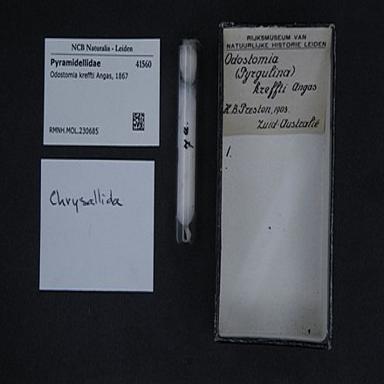 NCB Naturalis - Leiden
Pyramidellidae 41560
Odostomia kreffti Angas, 1867
RMNH.MOL.230685
Chrysallida
RIJKSMUSEUM VAN
NATUURLIJKE HISTORIE LEIDEN
Odostomia
(Pyrgulina)
kreffti Angas
H.B. Preston, 1903.
Zuid-Australië
1.